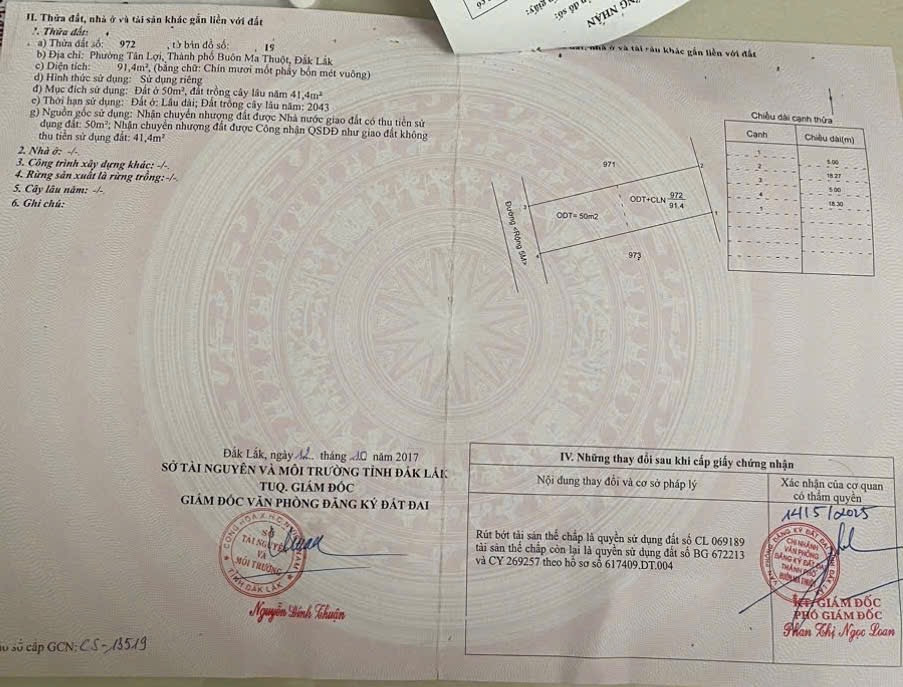 II. Thửa đất, nhà ở và tài sản khác gắn liền với đất
1. Thửa đất:
a) Thửa đất số: 972 , tờ bản đồ số: 19
b) Địa chỉ: Phường Tân Lợi, Thành phố Buôn Ma Thuột, Đắk Lắk
c) Diện tích: 91,4m², (bằng chữ: Chín mươi mốt phẩy bốn mét vuông)
d) Hình thức sử dụng: Sử dụng riêng
đ) Mục đích sử dụng: Đất ở 50m², đất trồng cây lâu năm 41,4m²
e) Thời hạn sử dụng: Đất ở: Lâu dài; Đất trồng cây lâu năm: 2043
g) Nguồn gốc sử dụng: Nhận chuyển nhượng đất được Nhà nước giao đất có thu tiền sử
dụng đất: 50m²; Nhận chuyển nhượng đất được Công nhận QSDĐ như giao đất không
thu tiền sử dụng đất: 41,4m²
2. Nhà ở: -/-
3. Công trình xây dựng khác: -/-
4. Rừng sản xuất là rừng trồng: -/-
5. Cây lâu năm: -/-
6. Ghi chú:
NHẬN
nhà ở và tài sản khác gắn liền với đất
Chiều dài cạnh thửa
Cạnh Chiều dài(m)
1
5.00
2
18.27
3
5.00
4
18.30
1
971
2
ODT+CLN 972
91.4
ODT= 50m2
3
1
4
973
Đường «Rộng 5M»
Đắk Lắk, ngày 12 tháng 10 năm 2017
SỞ TÀI NGUYÊN VÀ MÔI TRƯỜNG TỈNH ĐẮK LẮK
TUQ. GIÁM ĐỐC
GIÁM ĐỐC VĂN PHÒNG ĐĂNG KÝ ĐẤT ĐAI
SỞ
TÀI NGUYÊN
VÀ
MÔI TRƯỜNG
TỈNH ĐẮK LẮK
Nguyễn Đình Thuận
số cấp GCN: CS-13519
IV. Những thay đổi sau khi cấp giấy chứng nhận
Nội dung thay đổi và cơ sở pháp lý
Xác nhận của cơ quan
có thẩm quyền
14/5/2025
Rút bớt tài sản thế chấp là quyền sử dụng đất số CL 069189
tài sản thế chấp còn lại là quyền sử dụng đất số BG 672213
và CY 269257 theo hồ sơ số 617409.DT.004
CHI NHÁNH
VĂN PHÒNG
ĐĂNG KÝ ĐẤT ĐAI
THÀNH PHỐ
BUÔN MA THUỘT
KT. GIÁM ĐỐC
PHÓ GIÁM ĐỐC
Phan Thị Ngọc Loan